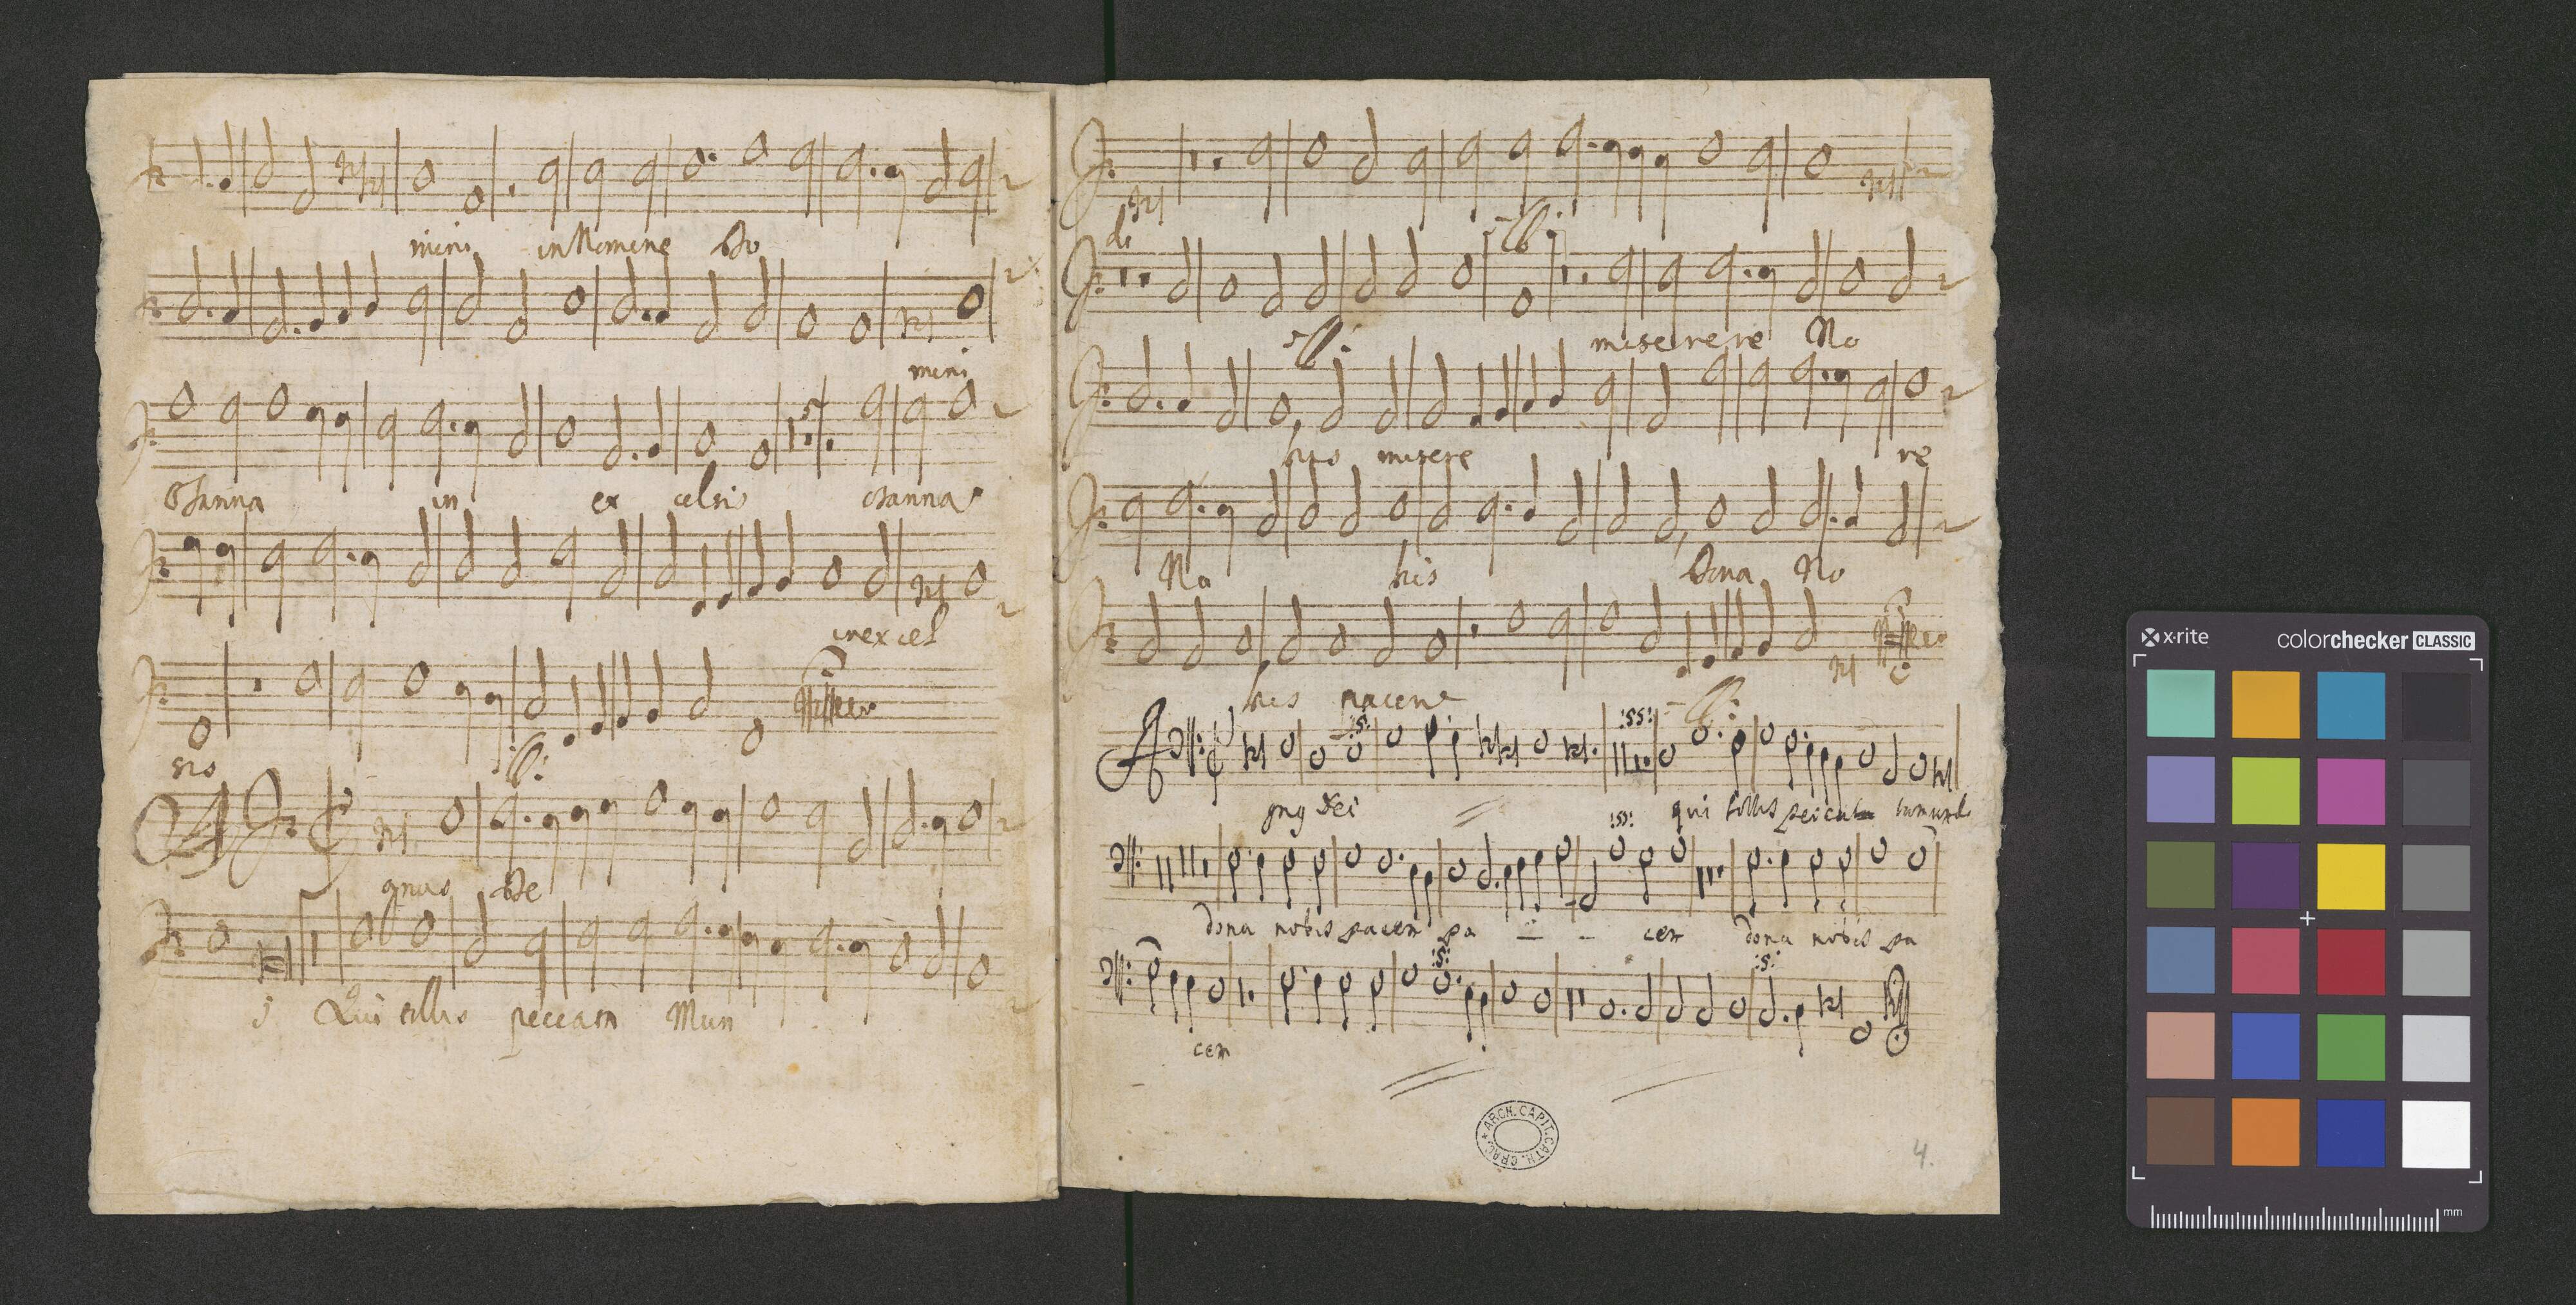 mini in Nomine Do
mini
Osanna in ex celsis osanna
in excel
sis
A
gnus De
i Qui tollis peccata Mun
di
miserere No
bis misere re
No bis Dona No
bis pacem
A
gnq Dei qui tollis peccata mundi
dona nobis pacem pa cem dona nobis pa
cem
ARCH. CAPIT. CATH. CRAC.
4.
x-rite colorchecker CLASSIC
mm